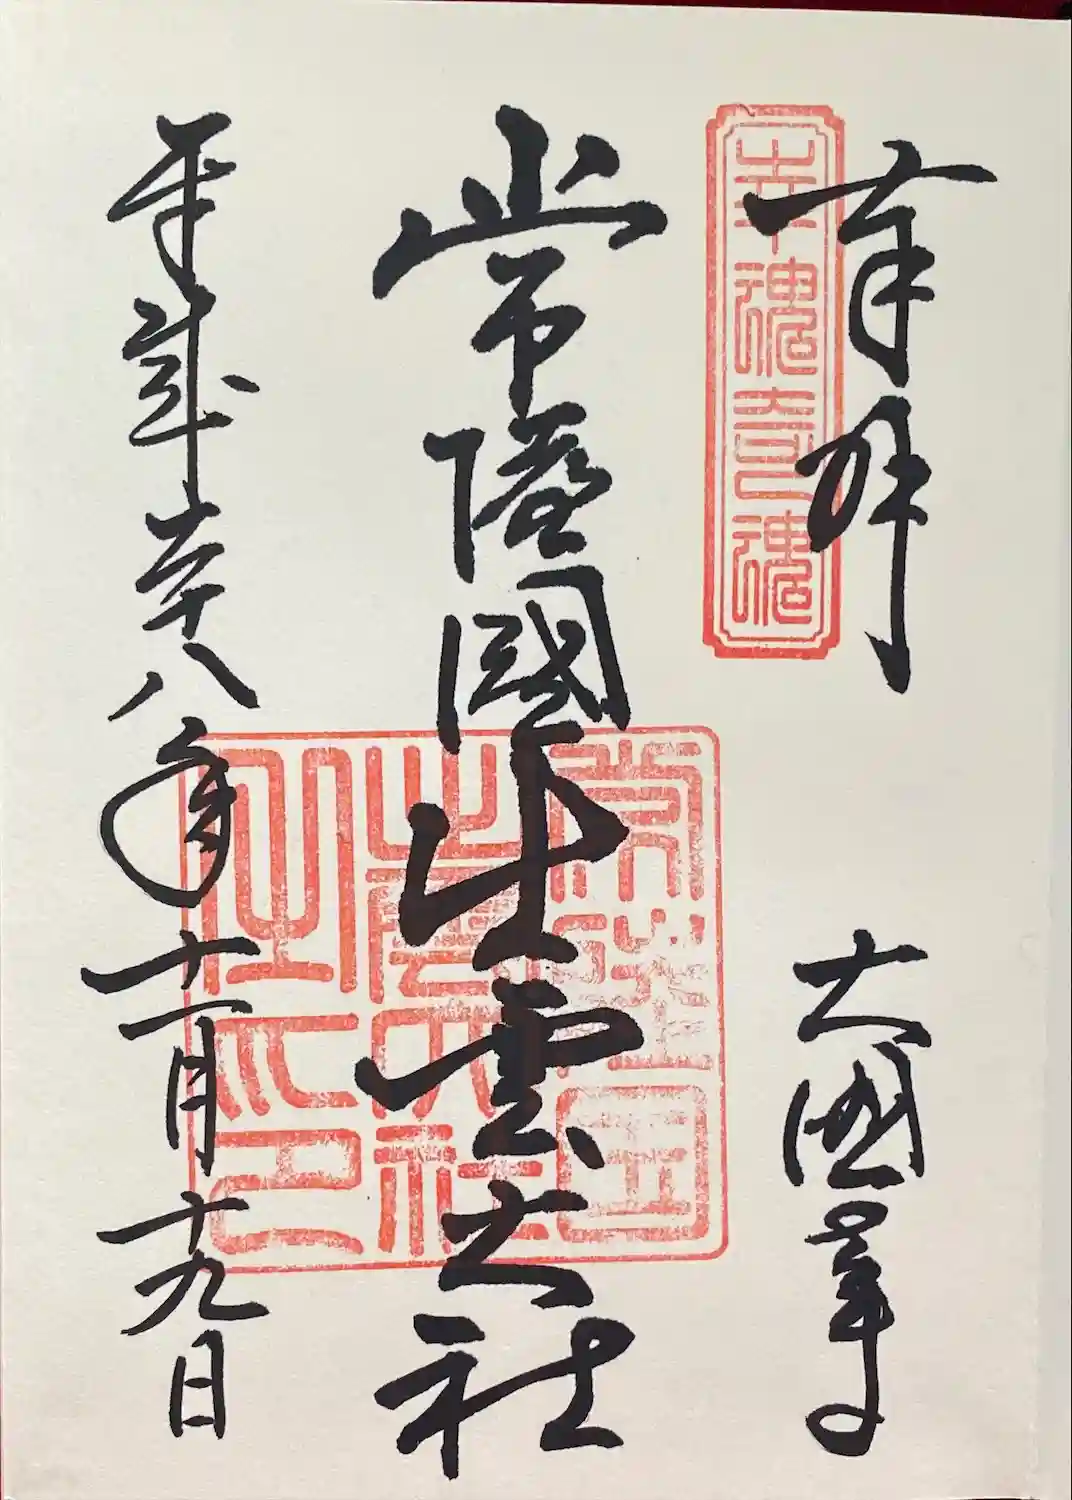 奉拝
幸魂奇魂
大國
常陸國出雲大社
常陸国
出雲大社
之印
平成二十八年十一月十九日